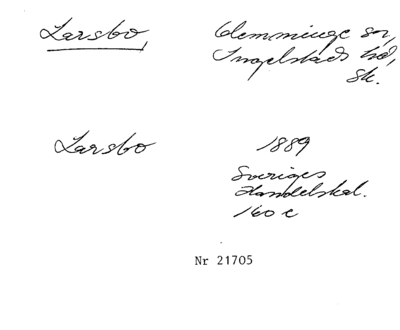 Larsbo,
Glemminge sn,
Ingelstads hd,
Sk.
Larsbo
1889
Sveriges
Handelskal.
160 c
Nr 21705